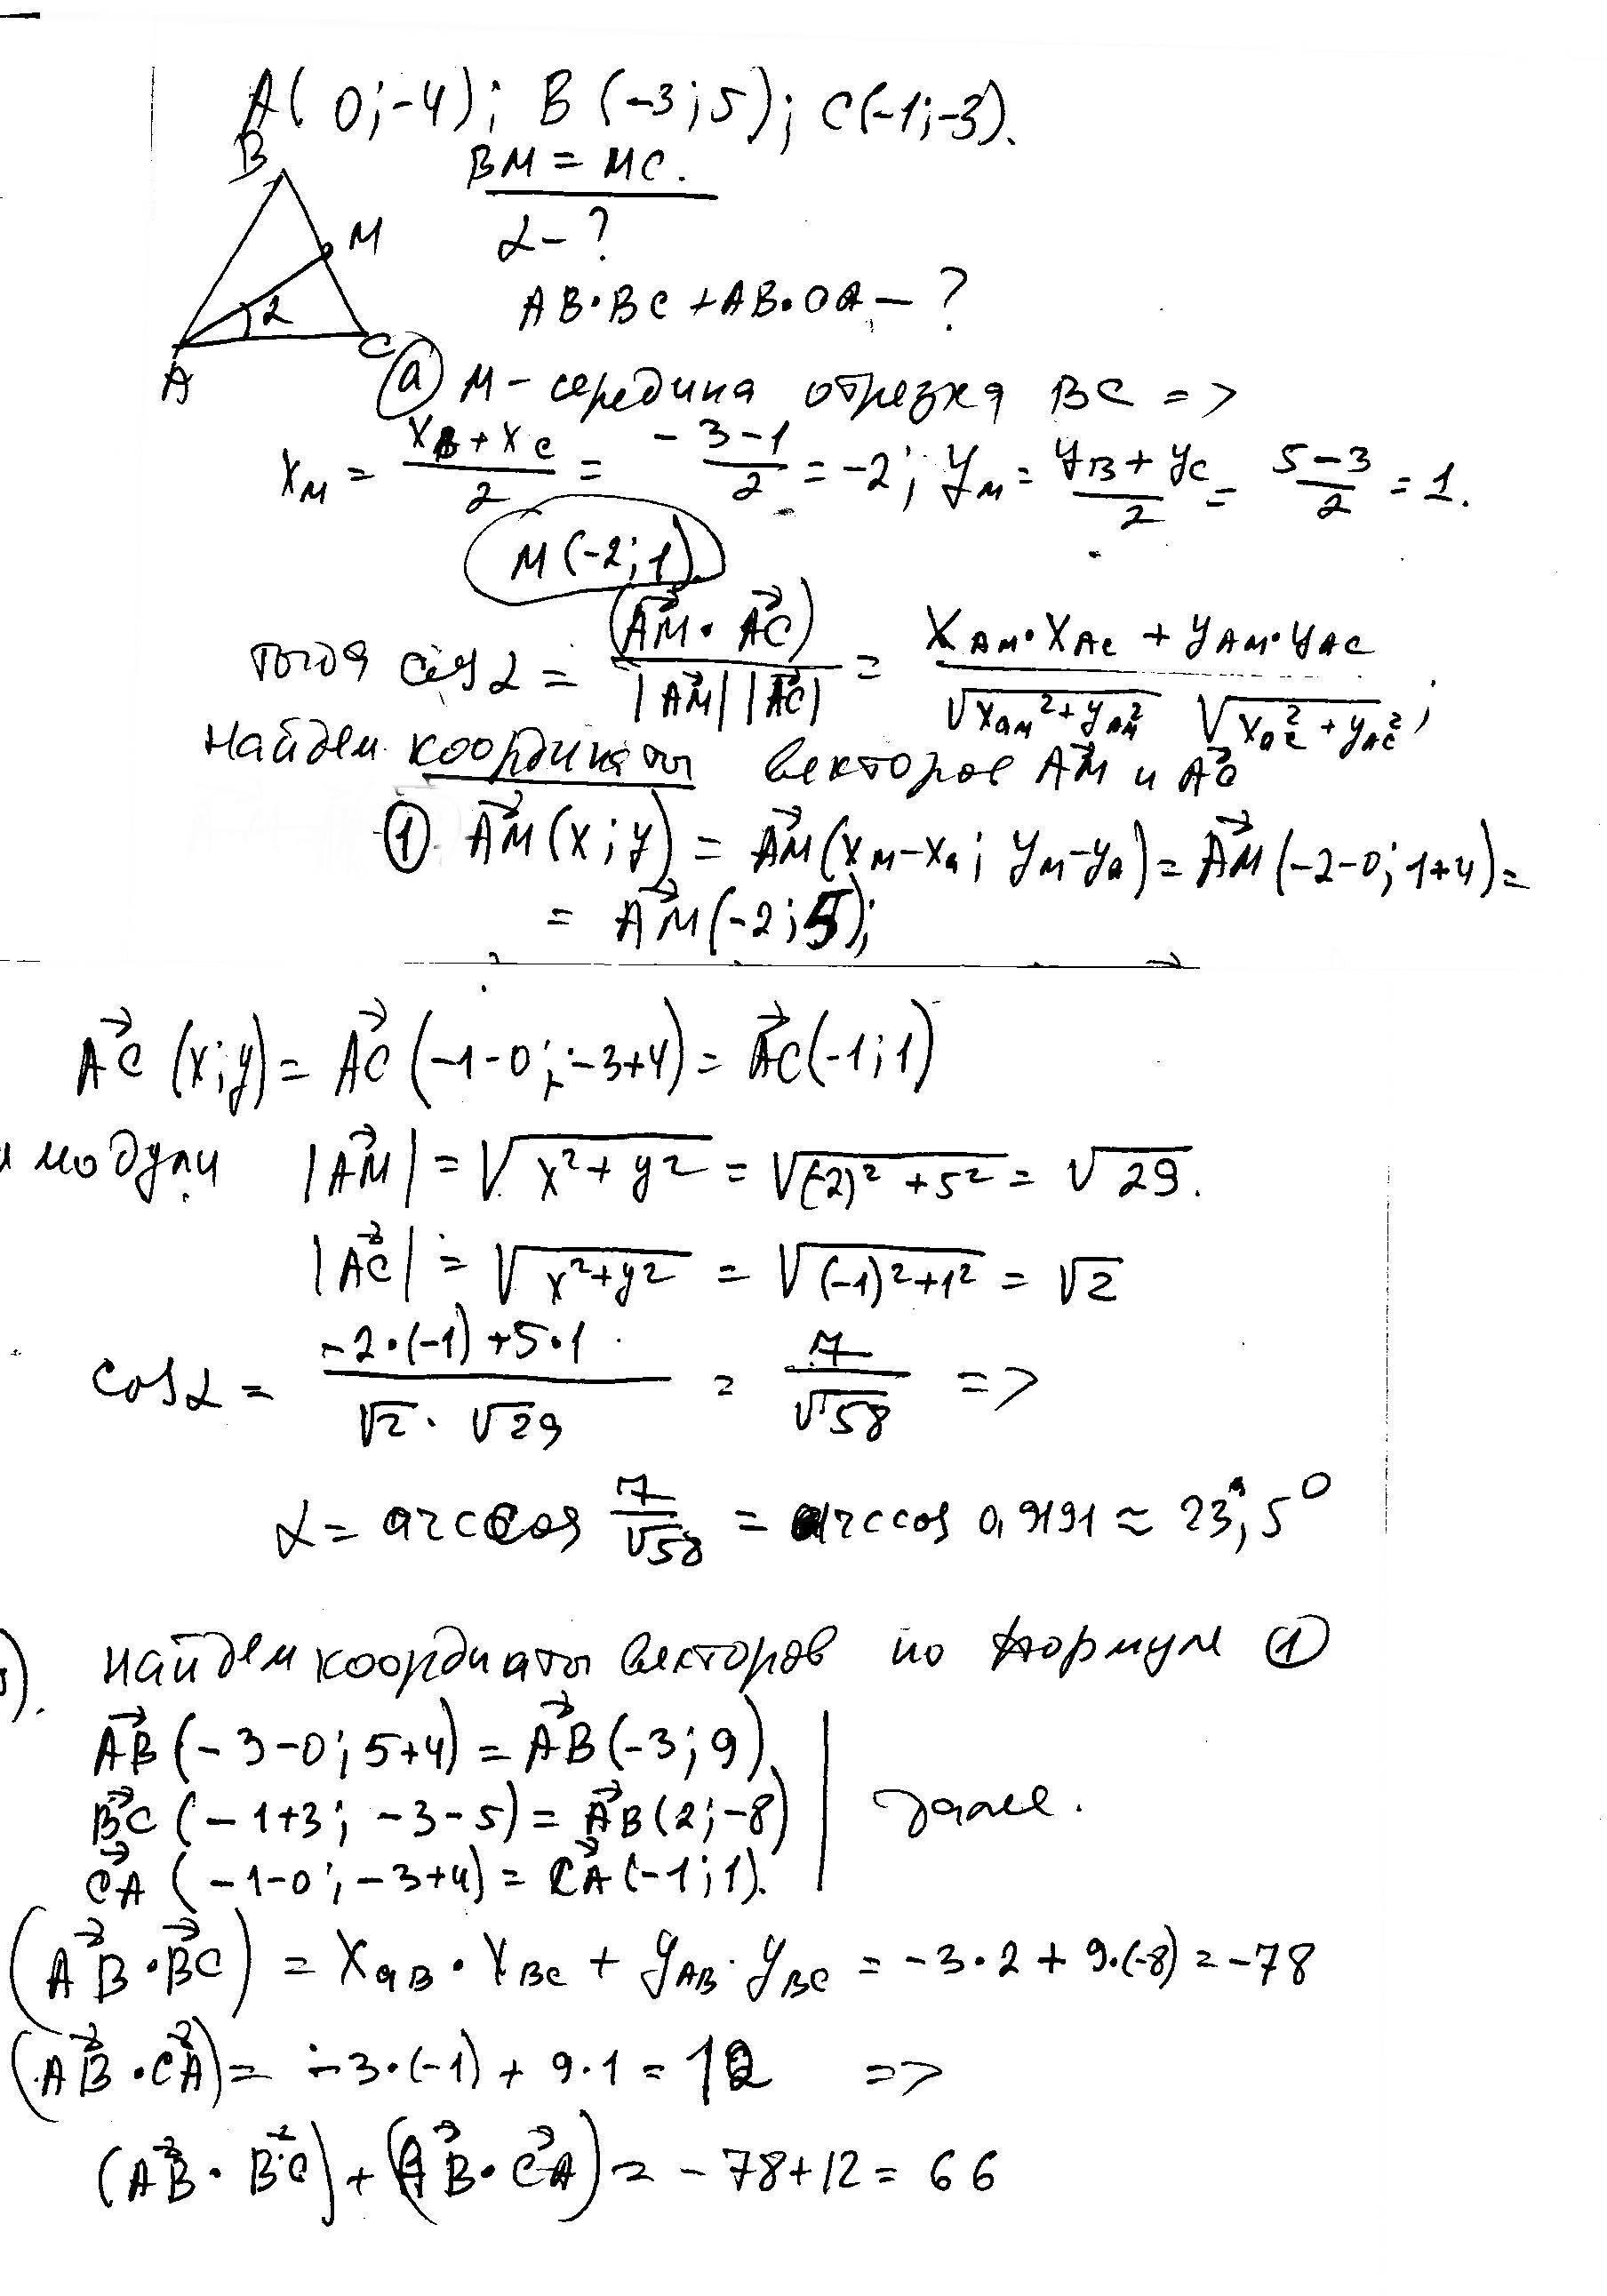 A(0;-4); B(-3;5); C(-1;-3).
B
BM = MC.
M
α - ?
α
AB·BC + AB·CA - ?
A
C
а) M - середина отрезка BC =>
x_M = (x_B + x_C)/2 = (-3-1)/2 = -2; y_M = (y_B + y_C)/2 = (5-3)/2 = 1.
M(-2;1)
тогда cos α = (AM→ · AC→)/(|AM→| |AC→|) = (x_AM · x_AC + y_AM · y_AC)/(√(x_AM² + y_AM²) √(x_AC² + y_AC²));
Найдем координаты векторов AM→ и AC→
① AM→(x;y) = AM→(x_M - x_A; y_M - y_A) = AM→(-2-0; 1+4) =
= AM→(-2;5);
AC→(x;y) = AC→(-1-0; -3+4) = AC→(-1;1)
и модули |AM→| = √(x²+y²) = √((-2)²+5²) = √29.
|AC→| = √(x²+y²) = √((-1)²+1²) = √2
cos α = (-2·(-1)+5·1)/(√2·√29) = 7/√58 =>
α = arccos 7/√58 = arccos 0,9191 ≈ 23,5°
). Найдем координаты векторов по формуле ①
AB→(-3-0; 5+4) = AB→(-3;9)
BC→(-1+3; -3-5) = AB→(2;-8)
далее.
CA→(-1-0; -3+4) = CA→(-1;1).
(AB→·BC→) = x_AB · x_BC + y_AB · y_BC = -3·2 + 9·(-8) = -78
(AB→·CA→) = -3·(-1) + 9·1 = 12 =>
(AB→·BC→) + (AB→·CA→) = -78+12 = 66